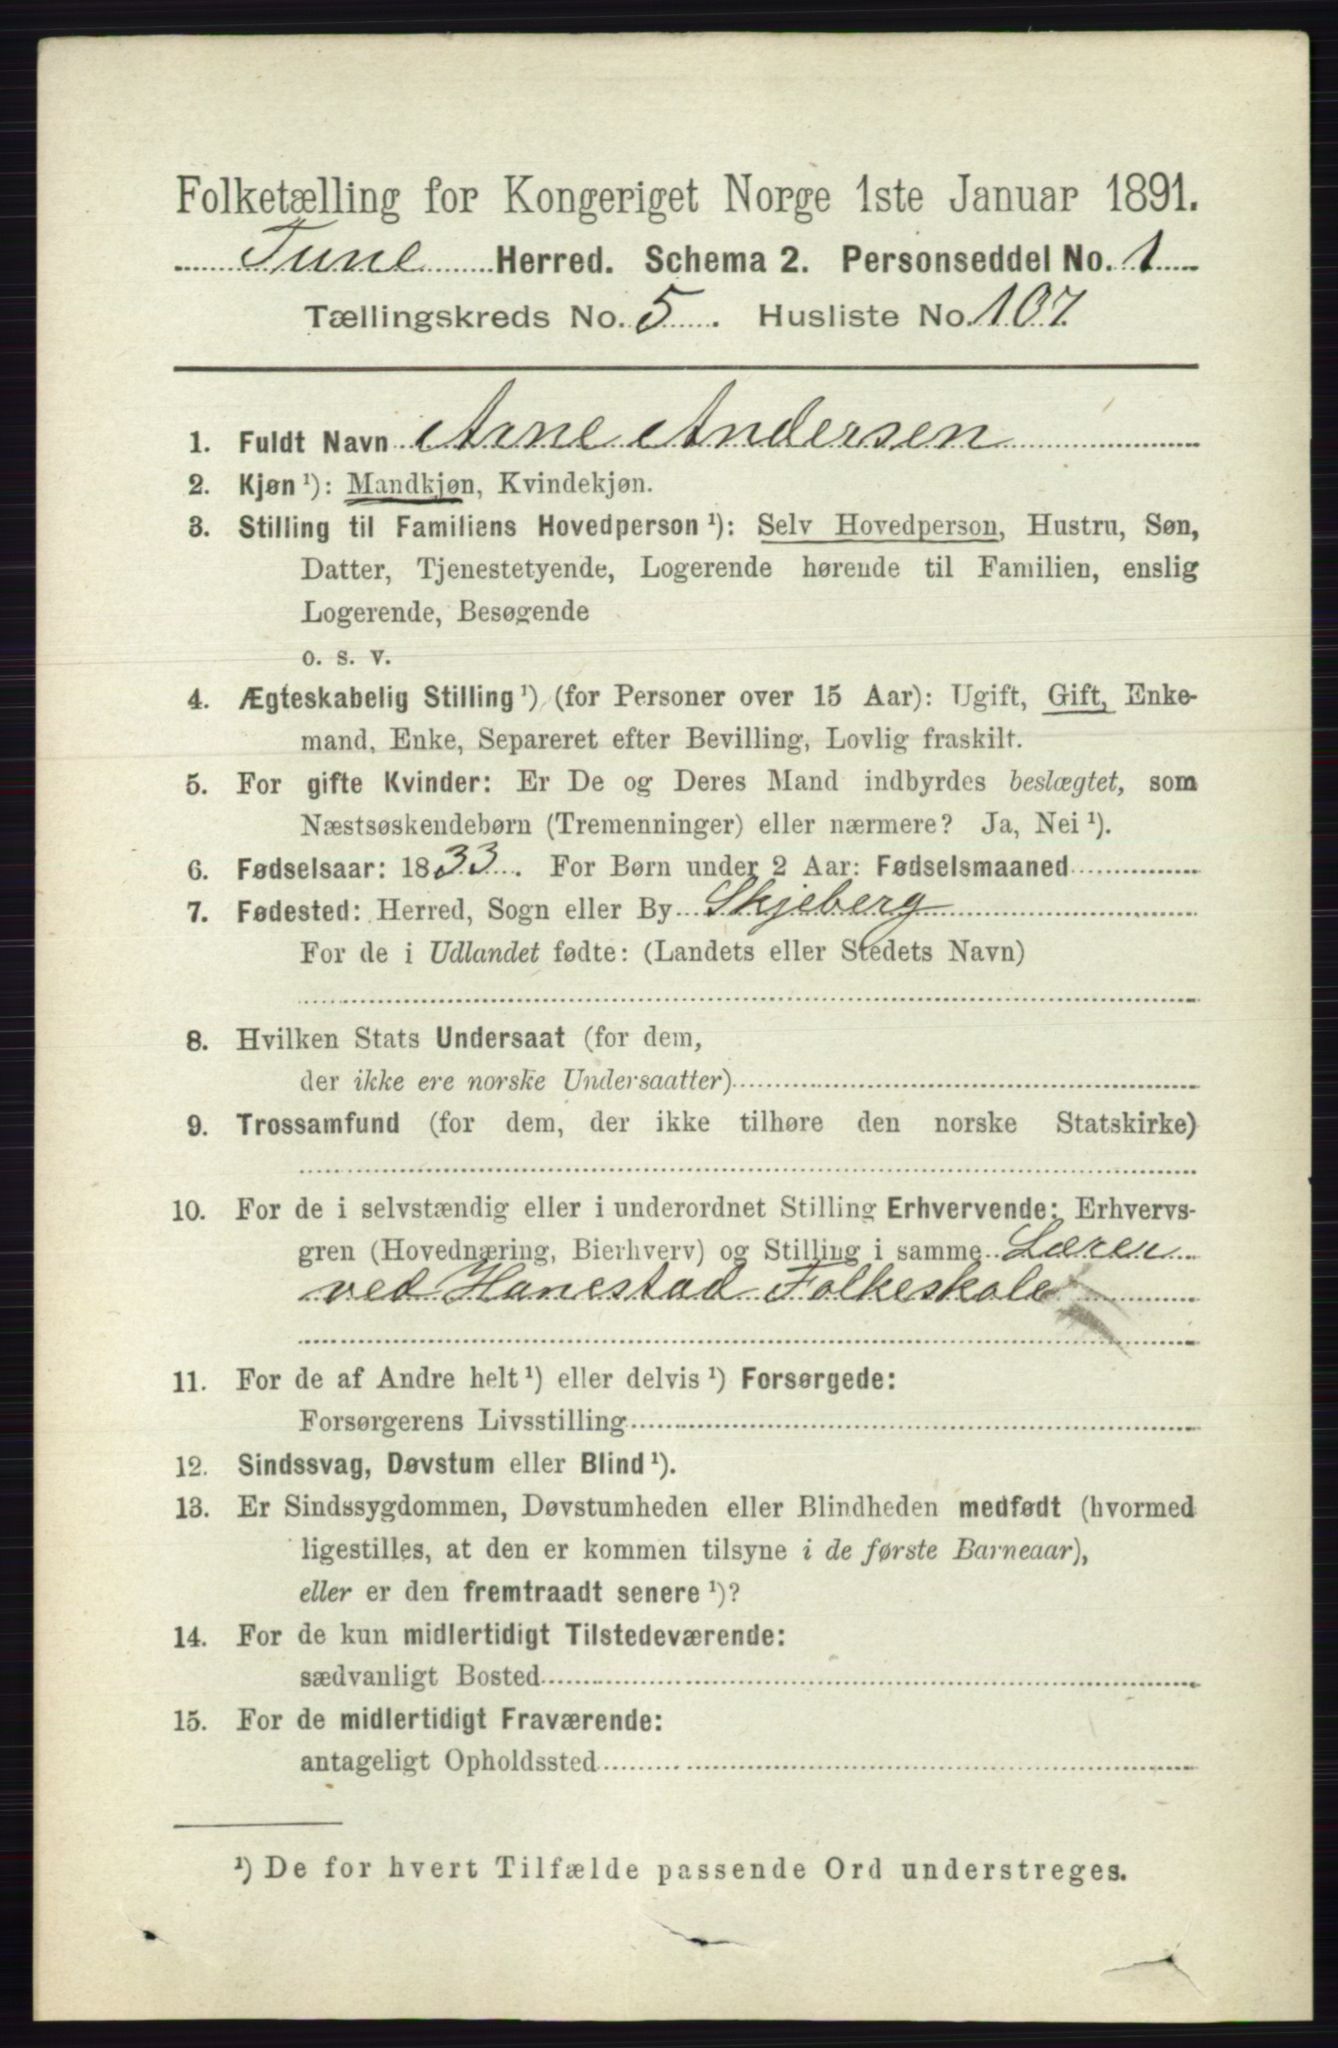 Folketælling for Kongeriget Norge 1ste Januar 1891.
Tune Herred. Schema 2. Personseddel No. 1
Tællingskreds No. 5. Husliste No. 107
1. Fuldt Navn Arne Andersen
2. Kjøn ¹): Mandkjøn, Kvindekjøn.
3. Stilling til Familiens Hovedperson ¹): Selv Hovedperson, Hustru, Søn,
Datter, Tjenestetyende, Logerende hørende til Familien, enslig
Logerende, Besøgende
o. s. v.
4. Ægteskabelig Stilling ¹) (for Personer over 15 Aar): Ugift, Gift, Enke-
mand, Enke, Separeret efter Bevilling, Lovlig fraskilt.
5. For gifte Kvinder: Er De og Deres Mand indbyrdes beslægtet, som
Næstsøskendebørn (Tremenninger) eller nærmere? Ja, Nei ¹).
6. Fødselsaar: 1833. For Børn under 2 Aar: Fødselsmaaned
7. Fødested: Herred, Sogn eller By Skjeberg
For de i Udlandet fødte: (Landets eller Stedets Navn)
8. Hvilken Stats Undersaat (for dem,
der ikke ere norske Undersaatter)
9. Trossamfund (for dem, der ikke tilhøre den norske Statskirke)
10. For de i selvstændig eller i underordnet Stilling Erhvervende: Erhvervs-
gren (Hovednæring, Bierhverv) og Stilling i samme Lærer
ved Hanestad Folkeskole
11. For de af Andre helt ¹) eller delvis ¹) Forsørgede:
Forsørgerens Livsstilling
12. Sindssvag, Døvstum eller Blind ¹).
13. Er Sindssygdommen, Døvstumheden eller Blindheden medfødt (hvormed
ligestilles, at den er kommen tilsyne i de første Barneaar),
eller er den fremtraadt senere ¹)?
14. For de kun midlertidigt Tilstedeværende:
sædvanligt Bosted
15. For de midlertidigt Fraværende:
antageligt Opholdssted
¹) De for hvert Tilfælde passende Ord understreges.